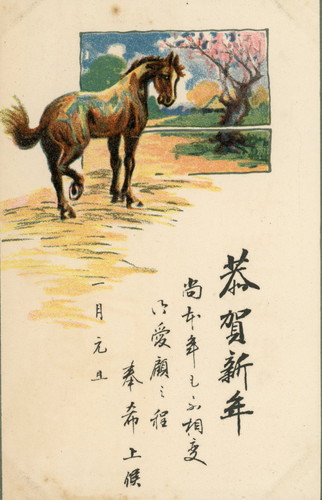 恭賀新年
尚本年も不相変
御愛顧之程
奉希上候
一月元旦